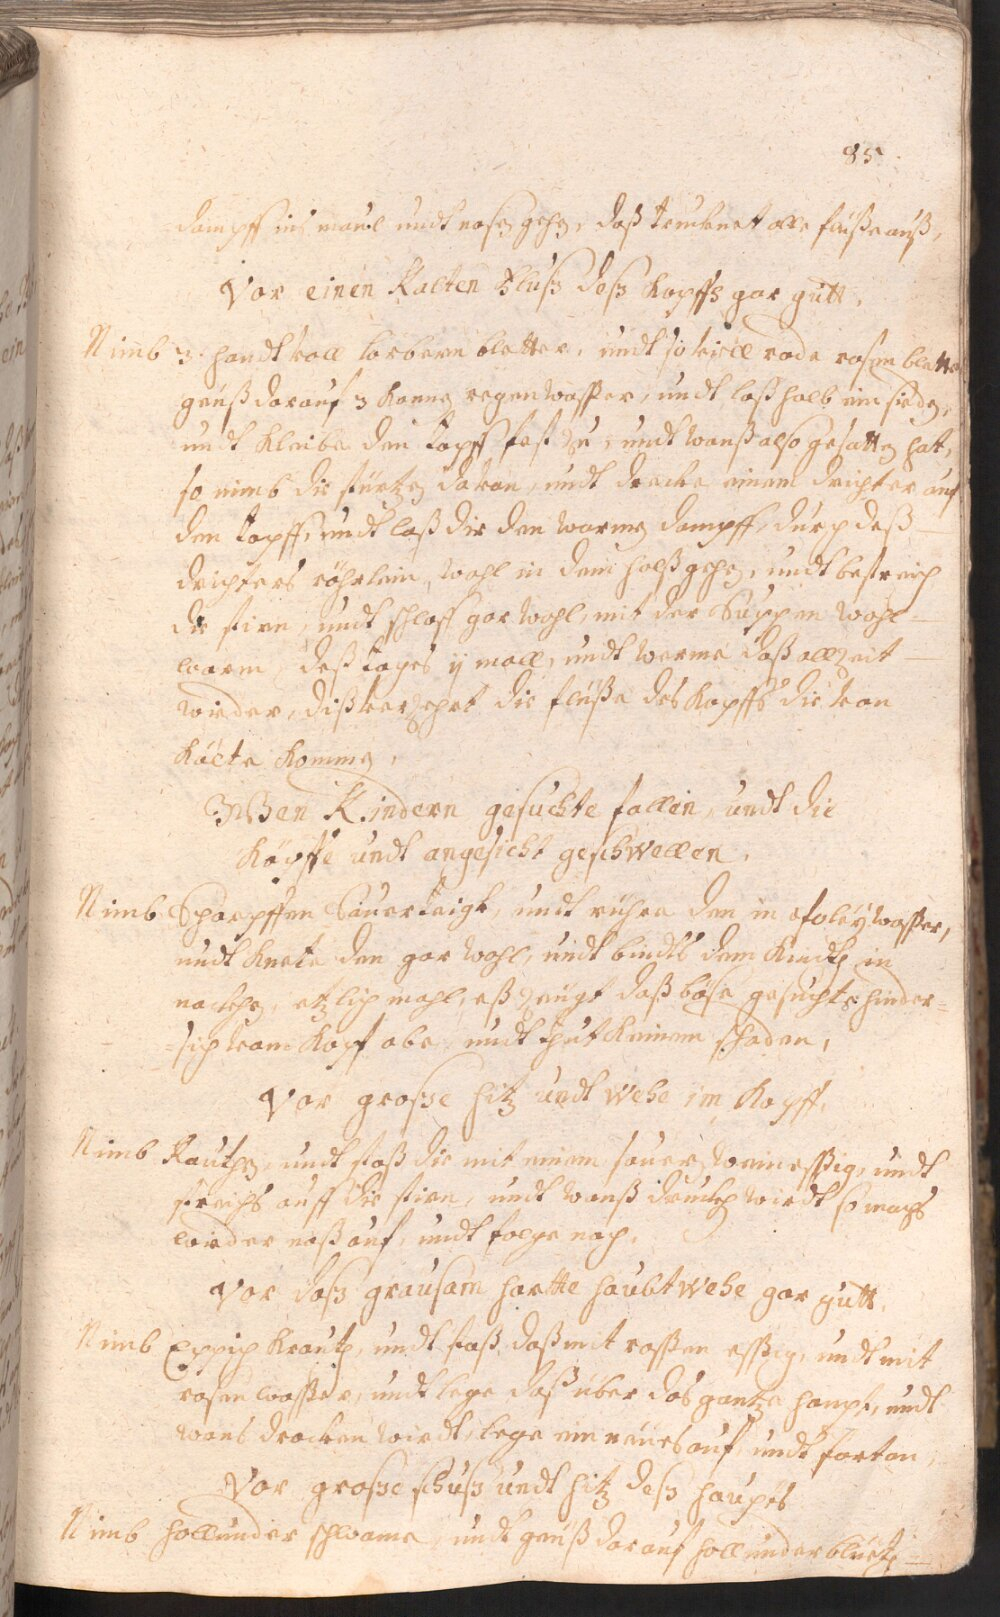 85.
dampff ins maul undt nasen gehen, daß truknet alle flüße auß,
Vor einen Kalten Fluß deß Kopffs gar gutt,
Nimb 3. handt voll lorbern bletter, undt so viell rode rosen bletter
geuß darauf 3 Kannen regen wasser, undt laß halb ein sieden,
undt Kleibe den topff fest zu, undt wanß also gesatten hat,
so nimb die stürtzen davon, undt decke einen drichter auf
den topff, undt laß dir den warmen dampff, durch deß
drichters röhrlein, wohl in den halß gehen, undt bestreich
die stirn, undt schlaff gar wohl, mit der Suppen wohl-
warm, deß tages ij mall, undt werme daß allzeit
wieder, diß verzehrt die flüße des Kopffs die von
Kälte Kommen,
Wen Kindern gesuchte fallen, undt die
Köpffe undt angesicht geschwellen,
Nimb Scharpffen Sauerteigk, undt rühre den in wasser,
undt Knete den gar wohl, undt bindts dem Kinde in
nacken, etzlich mahl, eß zeugt daß böse gesuchte hinder-
sich vom Kopf abe, undt thut Keinen schaden,
Vor grosse hitz undt wehe im Kopff,
Nimb Rauthen, undt stoß die mit einem sauern weinessig, undt
streichs auff die stirn, undt wanß drucken wirdt so machs
wieder naß auf, undt folge nach,
Vor daß grausam hartte haubtwehe gar gutt,
Nimb Eppich Kraut, undt stoß daß mit rossen essig, undt mit
rosen wasser, undt lege daß über das gantze haupt, undt
wans drocken wirdt, lege ein neües auf, undt fortan,
Vor grosse schuß undt hitz deß haupts
Nimb hollunder schwame, undt geuß darauf hollunderblüet